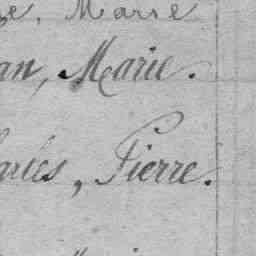 e, Marie
an, Marie.
arles, Pierre.